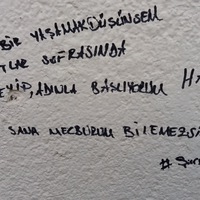 BİR YAŞAMAK DÜŞÜNSEM
LAR SOFRASINDA
EYİP, ADINLA BAŞLIYORUM HA
SANA MECBURUM BİLEMEZSİ
#ŞİİR